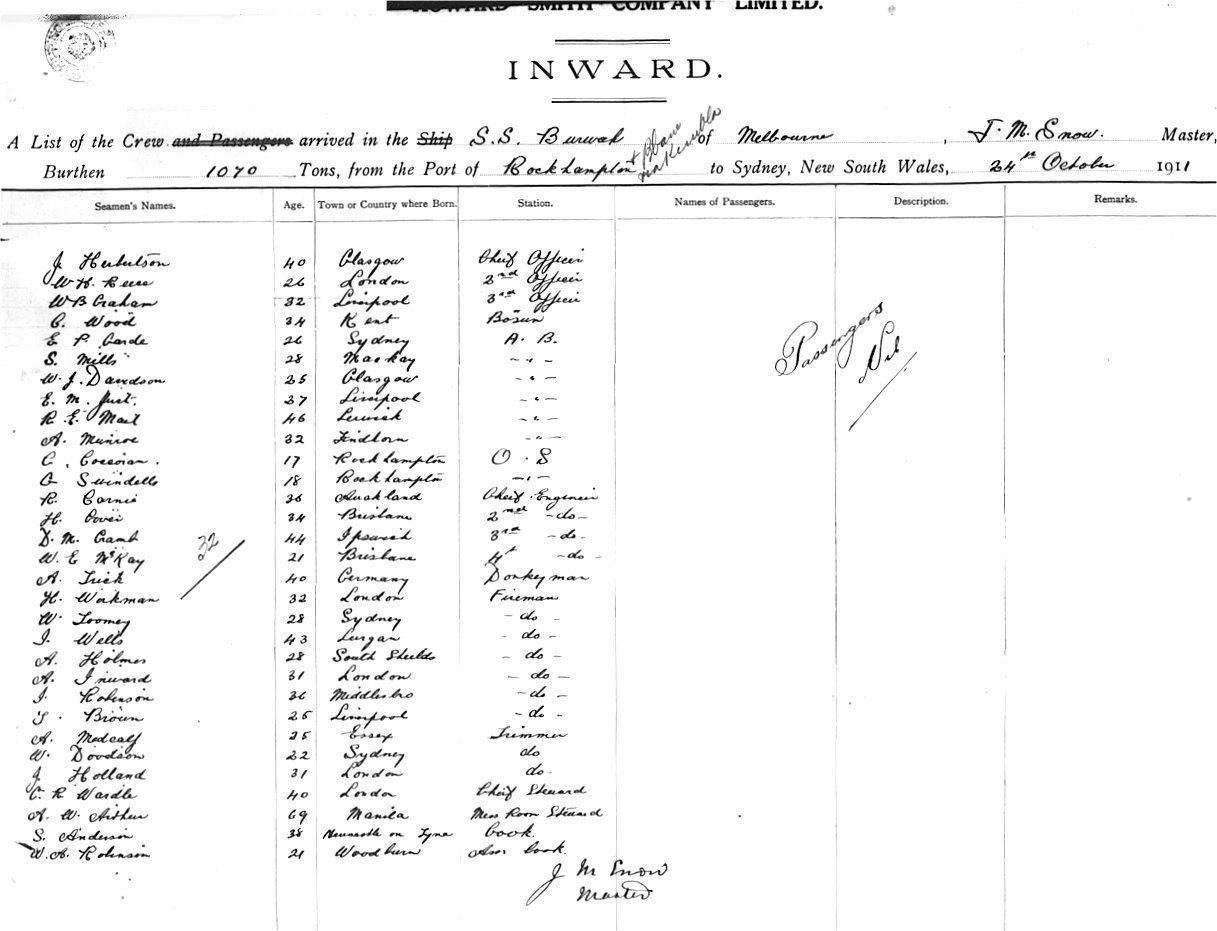 HOWARD SMITH COMPANY LIMITED.
INWARD.
A List of the Crew and Passengers arrived in the Ship S.S. Burwah of Melbourne, J. M. Snow. Master,
Burthen 1070 Tons, from the Port of Rockhampton + Bbane to Sydney, New South Wales, 24th October 1911
Seamen's Names. Age. Town or Country where Born. Station. Names of Passengers. Description. Remarks.
J. Herbertson 40 Glasgow Cheif Officer
W H. Reece 26 London 2nd Officer
W B Graham 32 Liverpool 3rd Officer
C. Wood 34 Kent Bosun
E P. Carde 26 Sydney A. B.
S. Mills 28 Mackay - " -
W. J. Davidson 25 Glasgow - " -
E. M. Just. 37 Liverpool - " -
R. E. 46 Lerwick - " -
A. Munroe 32 Findhorn - " -
C. 17 Rockhampton O. S
G Swindells 18 Rockhampton - " -
R. 36 Auckland Cheif Engineer
H. 34 Brisbane 2nd - do -
D. M. Cramb 44 Ipswich 3rd - do -
W. E McKay 21 Brisbane 4th - do -
A. Frick 40 Germany Donkeyman
H. Workman 32 London Fireman
W. Toomey 28 Sydney - do -
J. Wells 43 Lurgan - do -
A. Holmes 28 South Sheilds - do -
A. Inward 31 London - do -
J. Robinson 36 Middlesbro - do -
Brown 25 Liverpool - do -
A. Medcalf 25 Essex Trimmer
W. Dovdson 22 Sydney do
J. Holland 31 London do.
C. R Wardle 40 London Cheif Steward
A. W. Arthur 69 Manila Mess Room Steward
S. Anderson 38 Newcastle on Tyne Cook.
W. A. Robinson 21 Woodburn Ass. Cook.
32
Passengers
Nil
J M Snow
Master